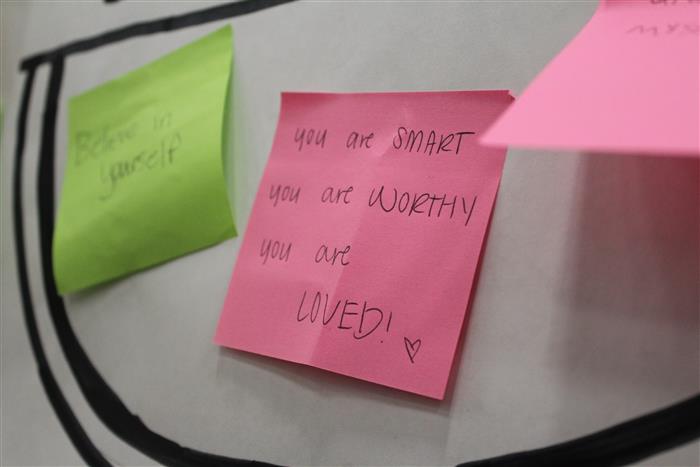 Believe in
yourself
you are SMART
you are WORTHY
you are
LOVED! ♡